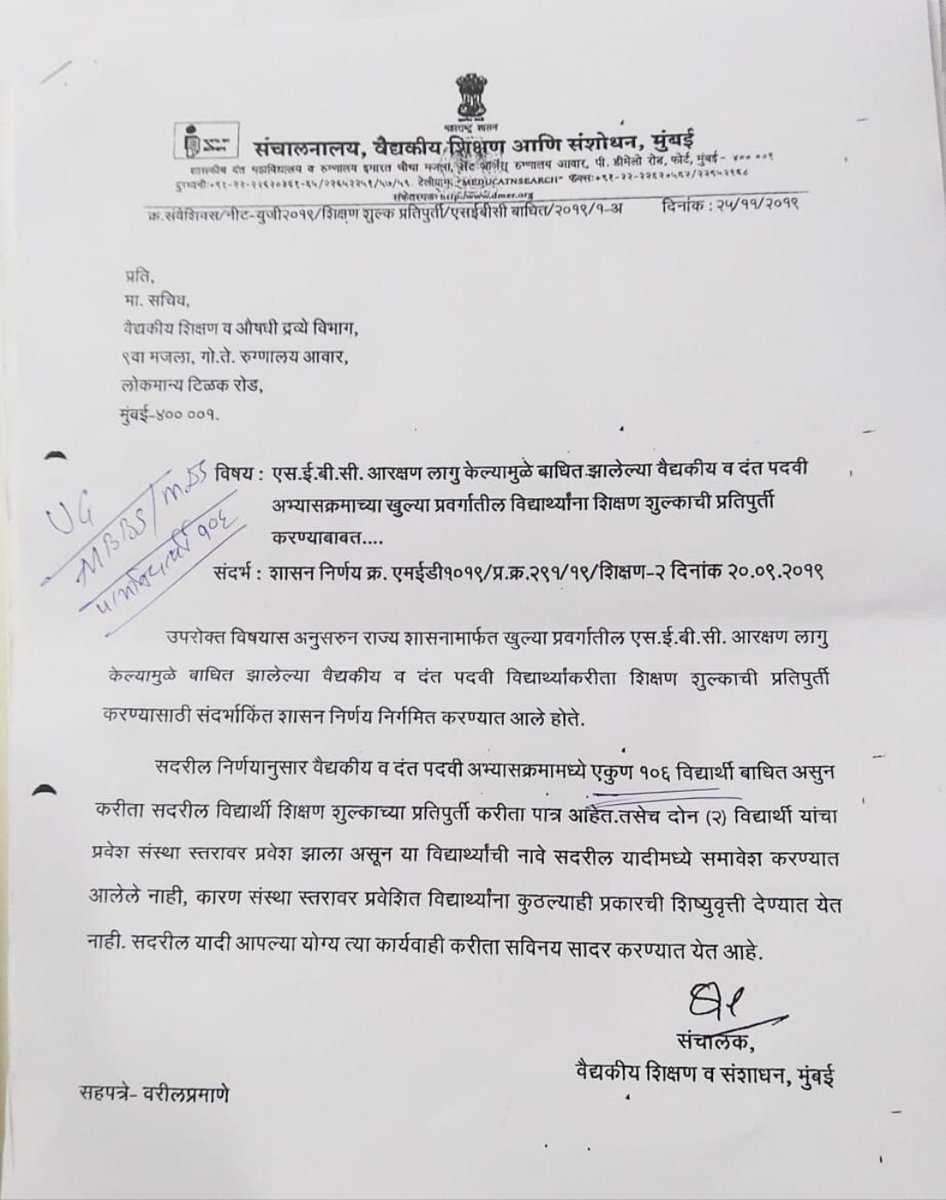 महाराष्ट्र शासन
संचालनालय, वैद्यकीय शिक्षण आणि संशोधन, मुंबई
शासकीय दंत महाविद्यालय व रुग्णालय इमारत चौथा मजला, सेंट जॉर्जेस रुग्णालय आवार, पी. डीमेलो रोड, फोर्ट, मुंबई- ४०० ००१
टेलिग्राम "MEDUCATNSEARCH"
संकेतस्थळ http://www.dmer.org
क्र.संवैशिवसं/नीट-युजी२०१९/शिक्षण शुल्क प्रतिपुर्ती/एसईबीसी बाधित/२०१९/१-अ दिनांक : २५/११/२०१९
प्रति,
मा. सचिव,
वैद्यकीय शिक्षण व औषधी द्रव्ये विभाग,
९वा मजला, गो.ते. रुग्णालय आवार,
लोकमान्य टिळक रोड,
मुंबई-४०० ००१.
UG
MBBS/MDS
१०६
विषय : एस.ई.बी.सी. आरक्षण लागु केल्यामुळे बाधित झालेल्या वैद्यकीय व दंत पदवी
अभ्यासक्रमाच्या खुल्या प्रवर्गातील विद्यार्थ्यांना शिक्षण शुल्काची प्रतिपुर्ती
करण्याबाबत....
संदर्भ : शासन निर्णय क्र. एमईडी१०१९/प्र.क्र.२९१/१९/शिक्षण-२ दिनांक २०.०९.२०१९
उपरोक्त विषयास अनुसरुन राज्य शासनामार्फत खुल्या प्रवर्गातील एस.ई.बी.सी. आरक्षण लागु
केल्यामुळे बाधित झालेल्या वैद्यकीय व दंत पदवी विद्यार्थ्यांकरीता शिक्षण शुल्काची प्रतिपुर्ती
करण्यासाठी संदर्भाकिंत शासन निर्णय निर्गमित करण्यात आले होते.
सदरील निर्णयानुसार वैद्यकीय व दंत पदवी अभ्यासक्रमामध्ये एकुण १०६ विद्यार्थी बाधित असुन
करीता सदरील विद्यार्थी शिक्षण शुल्काच्या प्रतिपुर्ती करीता पात्र आहेत.तसेच दोन (२) विद्यार्थी यांचा
प्रवेश संस्था स्तरावर प्रवेश झाला असून या विद्यार्थ्यांची नावे सदरील यादीमध्ये समावेश करण्यात
आलेले नाही, कारण संस्था स्तरावर प्रवेशित विद्यार्थ्यांना कुठल्याही प्रकारची शिष्युवृत्ती देण्यात येत
नाही. सदरील यादी आपल्या योग्य त्या कार्यवाही करीता सविनय सादर करण्यात येत आहे.
संचालक,
वैद्यकीय शिक्षण व संशाधन, मुंबई
सहपत्रे- वरीलप्रमाणे